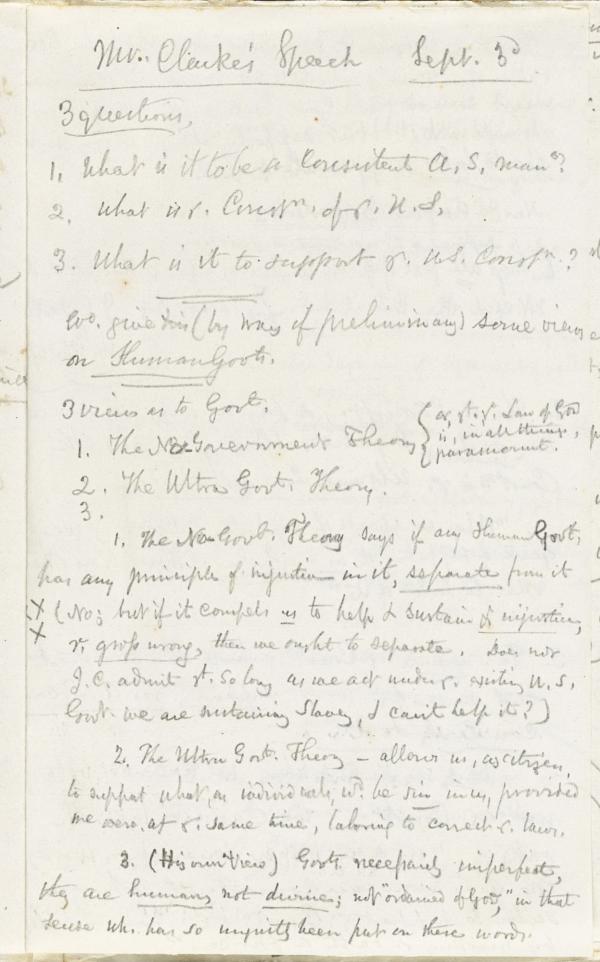 Mr. Clarke's Speech Sept. 3d
3 questions.
1. What is it to be a Consistent A. S. man?
2. What is ye. Constn. of ye. U. S.
3. What is it to support ye. U.S. Constn.?
give (by way of preliminary) some views
on Human Govts.
3 views as to Govt.
1. The No-Government Theory { or, yt. ye. Law of God
is, in all things,
paramount.
2. The Ultra Govt. Theory.
3.
1. The No-Govt. Theory says if any Human Govt.
has any principle of injustice in it, separate from it
X (No; but if it compels us to help & sustain ye injustice,
X or gross wrong, then we ought to separate. Does not
J. C. admit yt. so long as we act under ye. existing U. S.
Govt. we are sustaining Slavery, & can't help it?)
2. The Ultra Govt. Theory – allows us, as citizens,
to support what, as individuals, wd. be sin in us, provided
we were, at ye. same time, laboring to correct ye. laws.
3. (His own View) Govts. necessarily imperfect,
they are human, not divine; not "ordained of God," in that
sense wh. has so unjustly been put on these words.